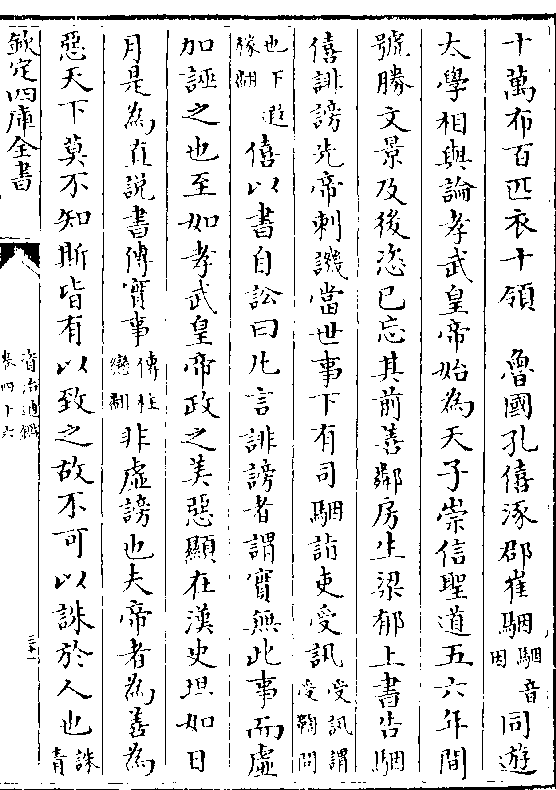 十萬布百匹衣十領　魯國孔僖涿郡崔駰駰音因同遊
太學相與論孝武皇帝始為天子崇信聖道五六年間
號勝文景及後恣己忘其前善鄰房生梁郁上書告駰
僖誹謗先帝刺譏當世事下有司駰詣吏受訊受訊謂受鞫問
也下遐稼翻僖以書自訟曰凡言誹謗者謂實無此事而虛
加誣之也至如孝武皇帝政之美惡顯在漢史坦如日
月是為直説書傳實事傳柱戀翻非虛謗也夫帝者為善為
惡天下莫不知斯皆有以致之故不可以誅於人也誅責
欽定四庫全書
資治通鑑
卷四十六